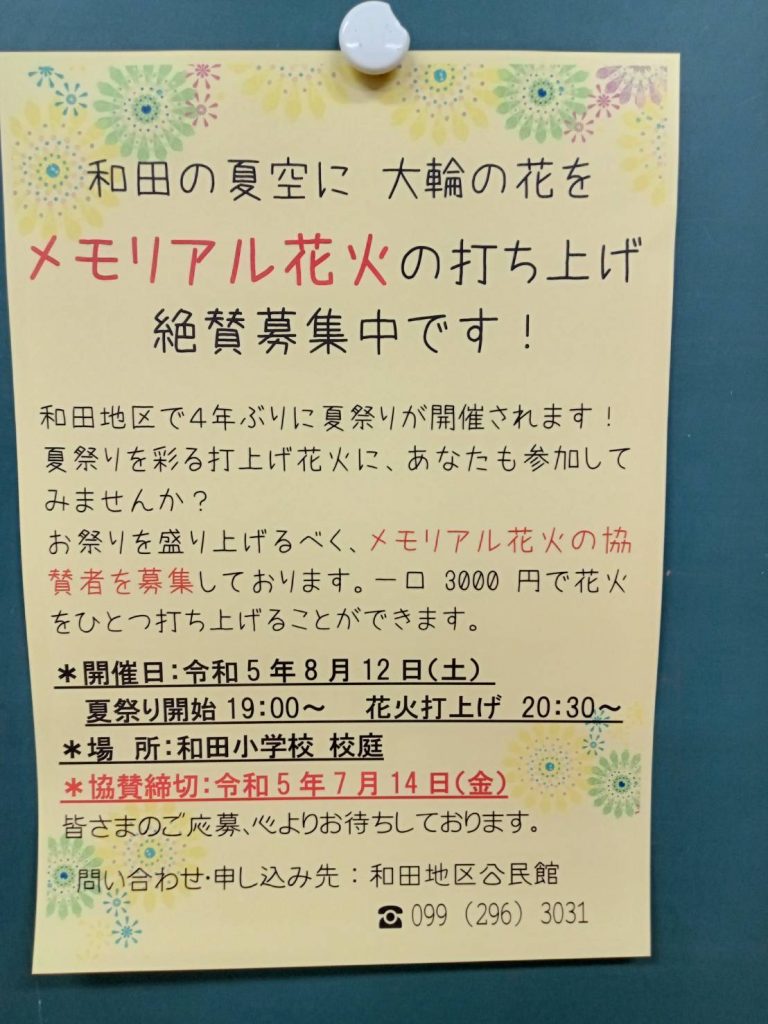 和田の夏空に 大輪の花を
メモリアル花火の打ち上げ
絶賛募集中です！
和田地区で４年ぶりに夏祭りが開催されます！
夏祭りを彩る打上げ花火に、あなたも参加して
みませんか？
お祭りを盛り上げるべく、メモリアル花火の協
賛者を募集しております。一口 3000 円で花火
をひとつ打ち上げることができます。
＊開催日：令和５年８月12日（土）
夏祭り開始 19：00～ 花火打上げ 20：30～
＊場 所：和田小学校 校庭
＊協賛締切：令和５年７月14日（金）
皆さまのご応募、心よりお待ちしております。
問い合わせ・申し込み先：和田地区公民館
☎ 099（296）3031